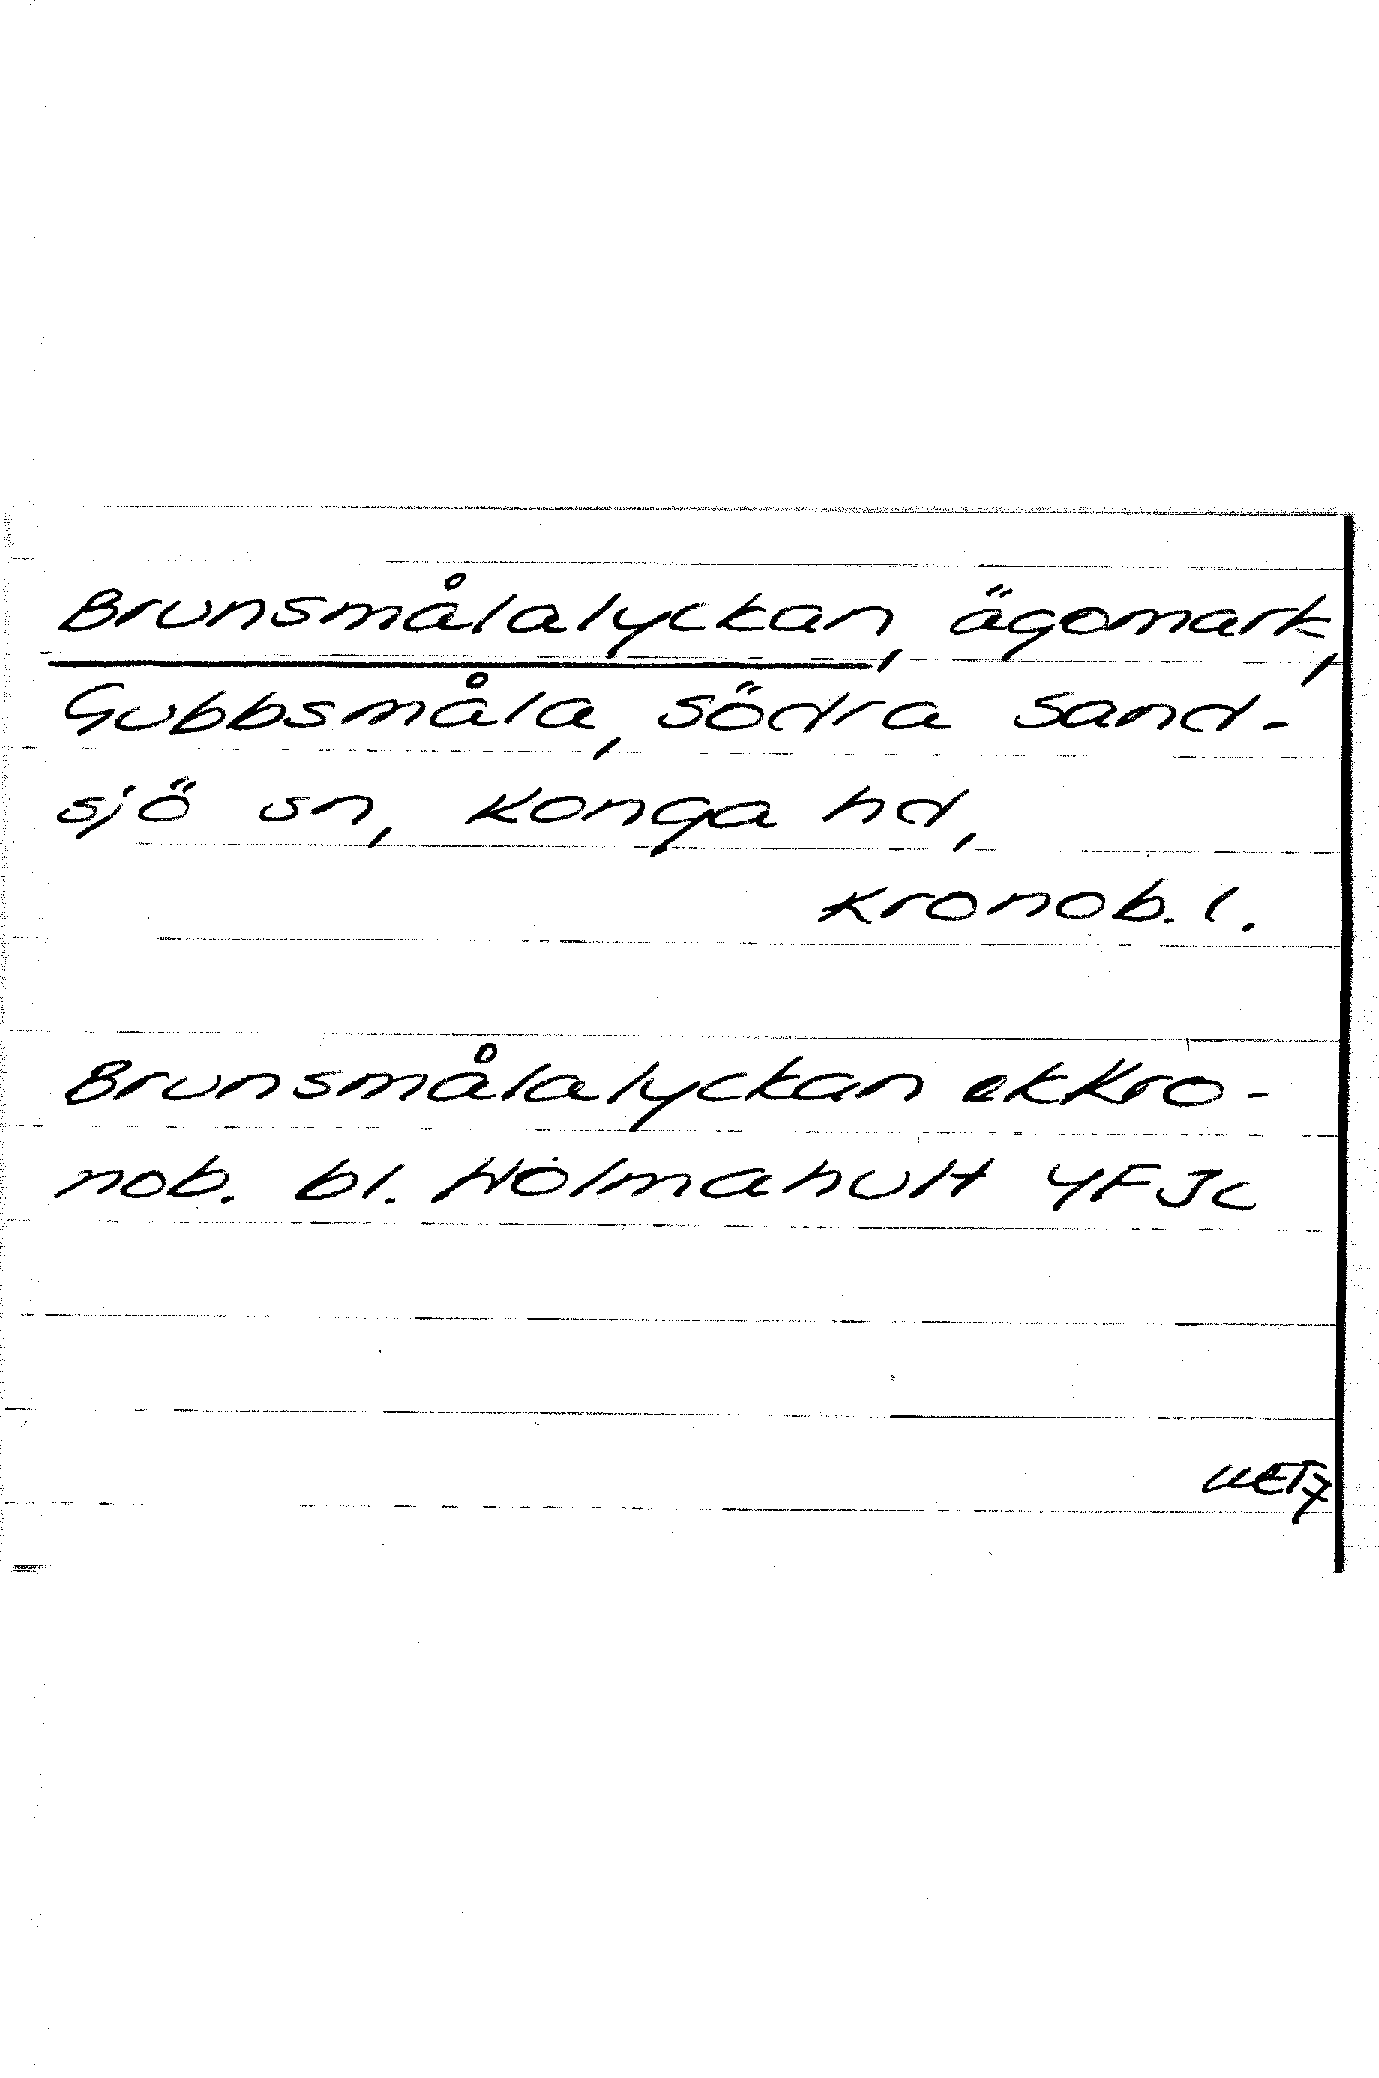 Brunsmålalyckan, ägomark,
Gubbsmåla, Södra Sand-
sjö sn, Konga hd,
Kronob. l.
Brunsmålalyckan ekKro-
nob. bl. Holmahult 4F3c